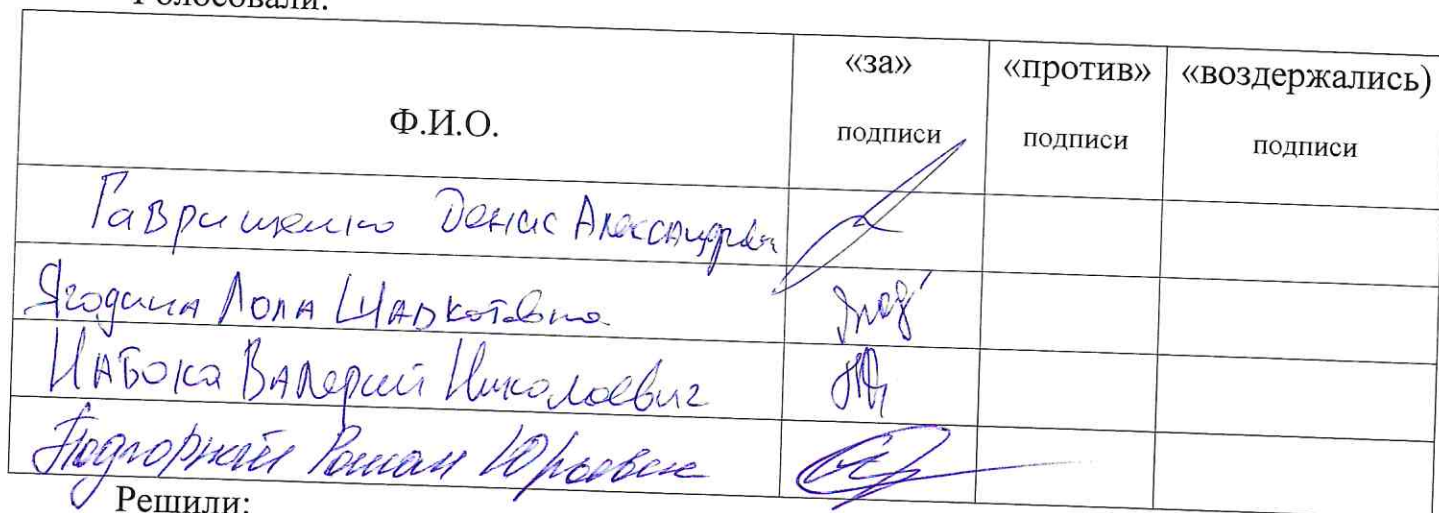 Голосовали:
Ф.И.О. «за» «против» «воздержались)
подписи подписи подписи
Гаврищенко Денис Александрович
Ягодина Лола Шавкатовна
Набока Валерий Николаевич
Подгорный Роман Юрьевич
Решили: